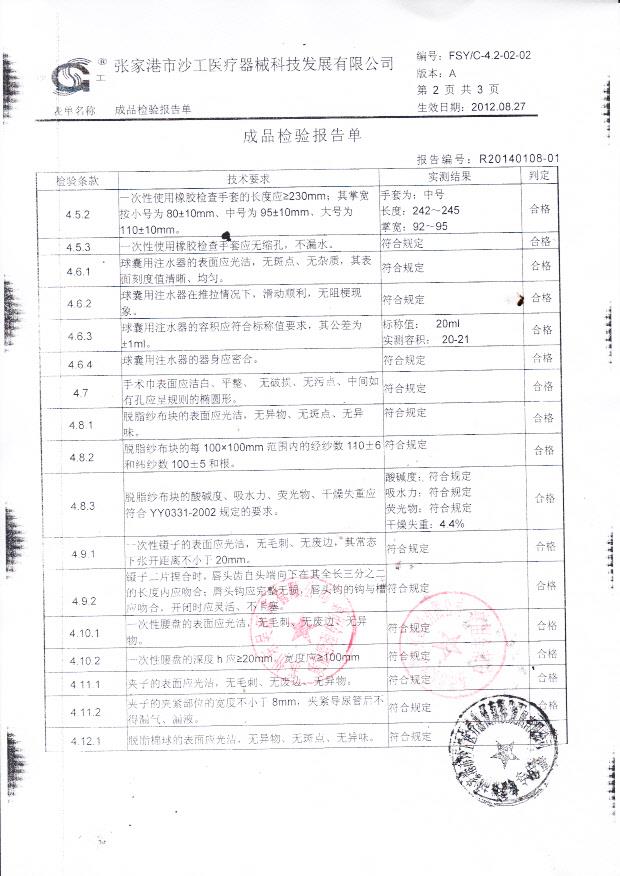 编号：FSY/C-4.2-02-02
张家港市沙工医疗器械科技发展有限公司
®
工
版本：A
第 2 页 共 3 页
表单名称 成品检验报告单
生效日期：2012.08.27
成品检验报告单
报告编号：R20140108-01
检验条款 技术要求 实测结果 判定
4.5.2 一次性使用橡胶检查手套的长度应≥230mm；其掌宽 手套为：中号 合格
按小号为 80±10mm、中号为 95±10mm、大号为 长度：242~245
110±10mm。 掌宽：92~95
4.5.3 一次性使用橡胶检查手套应无缩孔，不漏水。 符合规定 合格
4.6.1 球囊用注水器的表面应光洁，无斑点、无杂质，其表 符合规定 合格
面刻度值清晰、均匀。
4.6.2 球囊用注水器在推拉情况下，滑动顺利，无阻梗现 符合规定 合格
象。
4.6.3 球囊用注水器的容积应符合标称值要求，其公差为 标称值： 20ml 合格
±1ml。 实测容积： 20-21
4.6.4 球囊用注水器的器身应密合。 符合规定 合格
4.7 手术巾表面应洁白、平整、 无破损、无污点、中间如 符合规定 合格
有孔应呈规则的椭圆形。
4.8.1 脱脂纱布块的表面应光洁，无异物、无斑点、无异 符合规定 合格
味。
4.8.2 脱脂纱布块的每 100×100mm 范围内的经纱数 110±6 符合规定 合格
和纬纱数 100±5 和根。
4.8.3 脱脂纱布块的酸碱度、吸水力、荧光物、干燥失重应 酸碱度：符合规定 合格
符合 YY0331-2002 规定的要求。 吸水力：符合规定
荧光物：符合规定
干燥失重：4.4%
4.9.1 一次性镊子的表面应光洁，无毛刺、无废边，其常态 符合规定 合格
下张开距离不小于 20mm。
4.9.2 镊子二片捏合时，唇头齿自头端向下在其全长三分之二 符合规定 合格
的长度内应吻合；唇头钩应完整无损，唇头钩的钩与槽
应吻合，开闭时应灵活、不
4.10.1 一次性腰盘的表面应光洁，无毛刺、无废边、无异 符合规定 合格
物。
4.10.2 一次性腰盘的深度 h 应≥20mm，宽度应≥100mm 符合规定 合格
4.11.1 夹子的表面应光洁，无毛刺、无废边、无异物。 符合规定 合格
4.11.2 夹子的夹紧部位的宽度不小于 8mm，夹紧导尿管后不 符合规定 合格
得漏气、漏液。
4.12.1 脱脂棉球的表面应光洁，无异物、无斑点、无异味。 符合规定